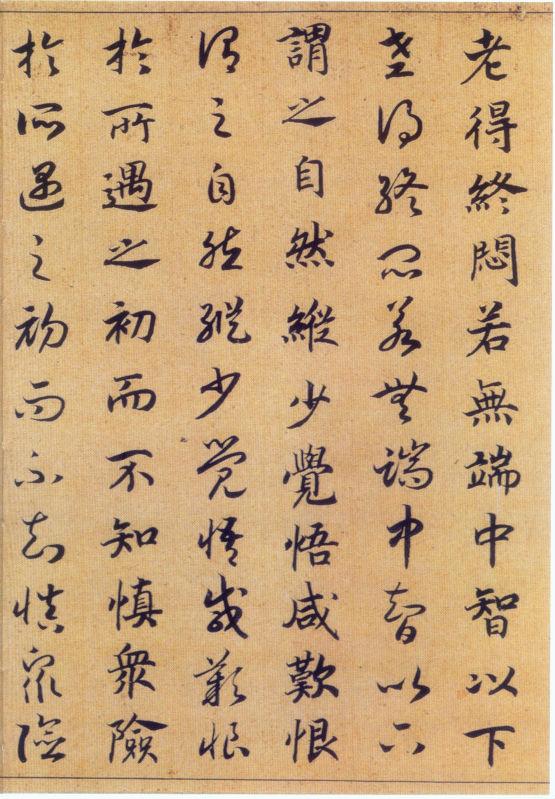 老得終悶若無端中智以下
老得終悶若無端中智以下
謂之自然縱少覺悟咸歎恨
謂之自然縱少覺悟咸歎恨
於所遇之初而不知慎衆險
於所遇之初而不知慎衆險